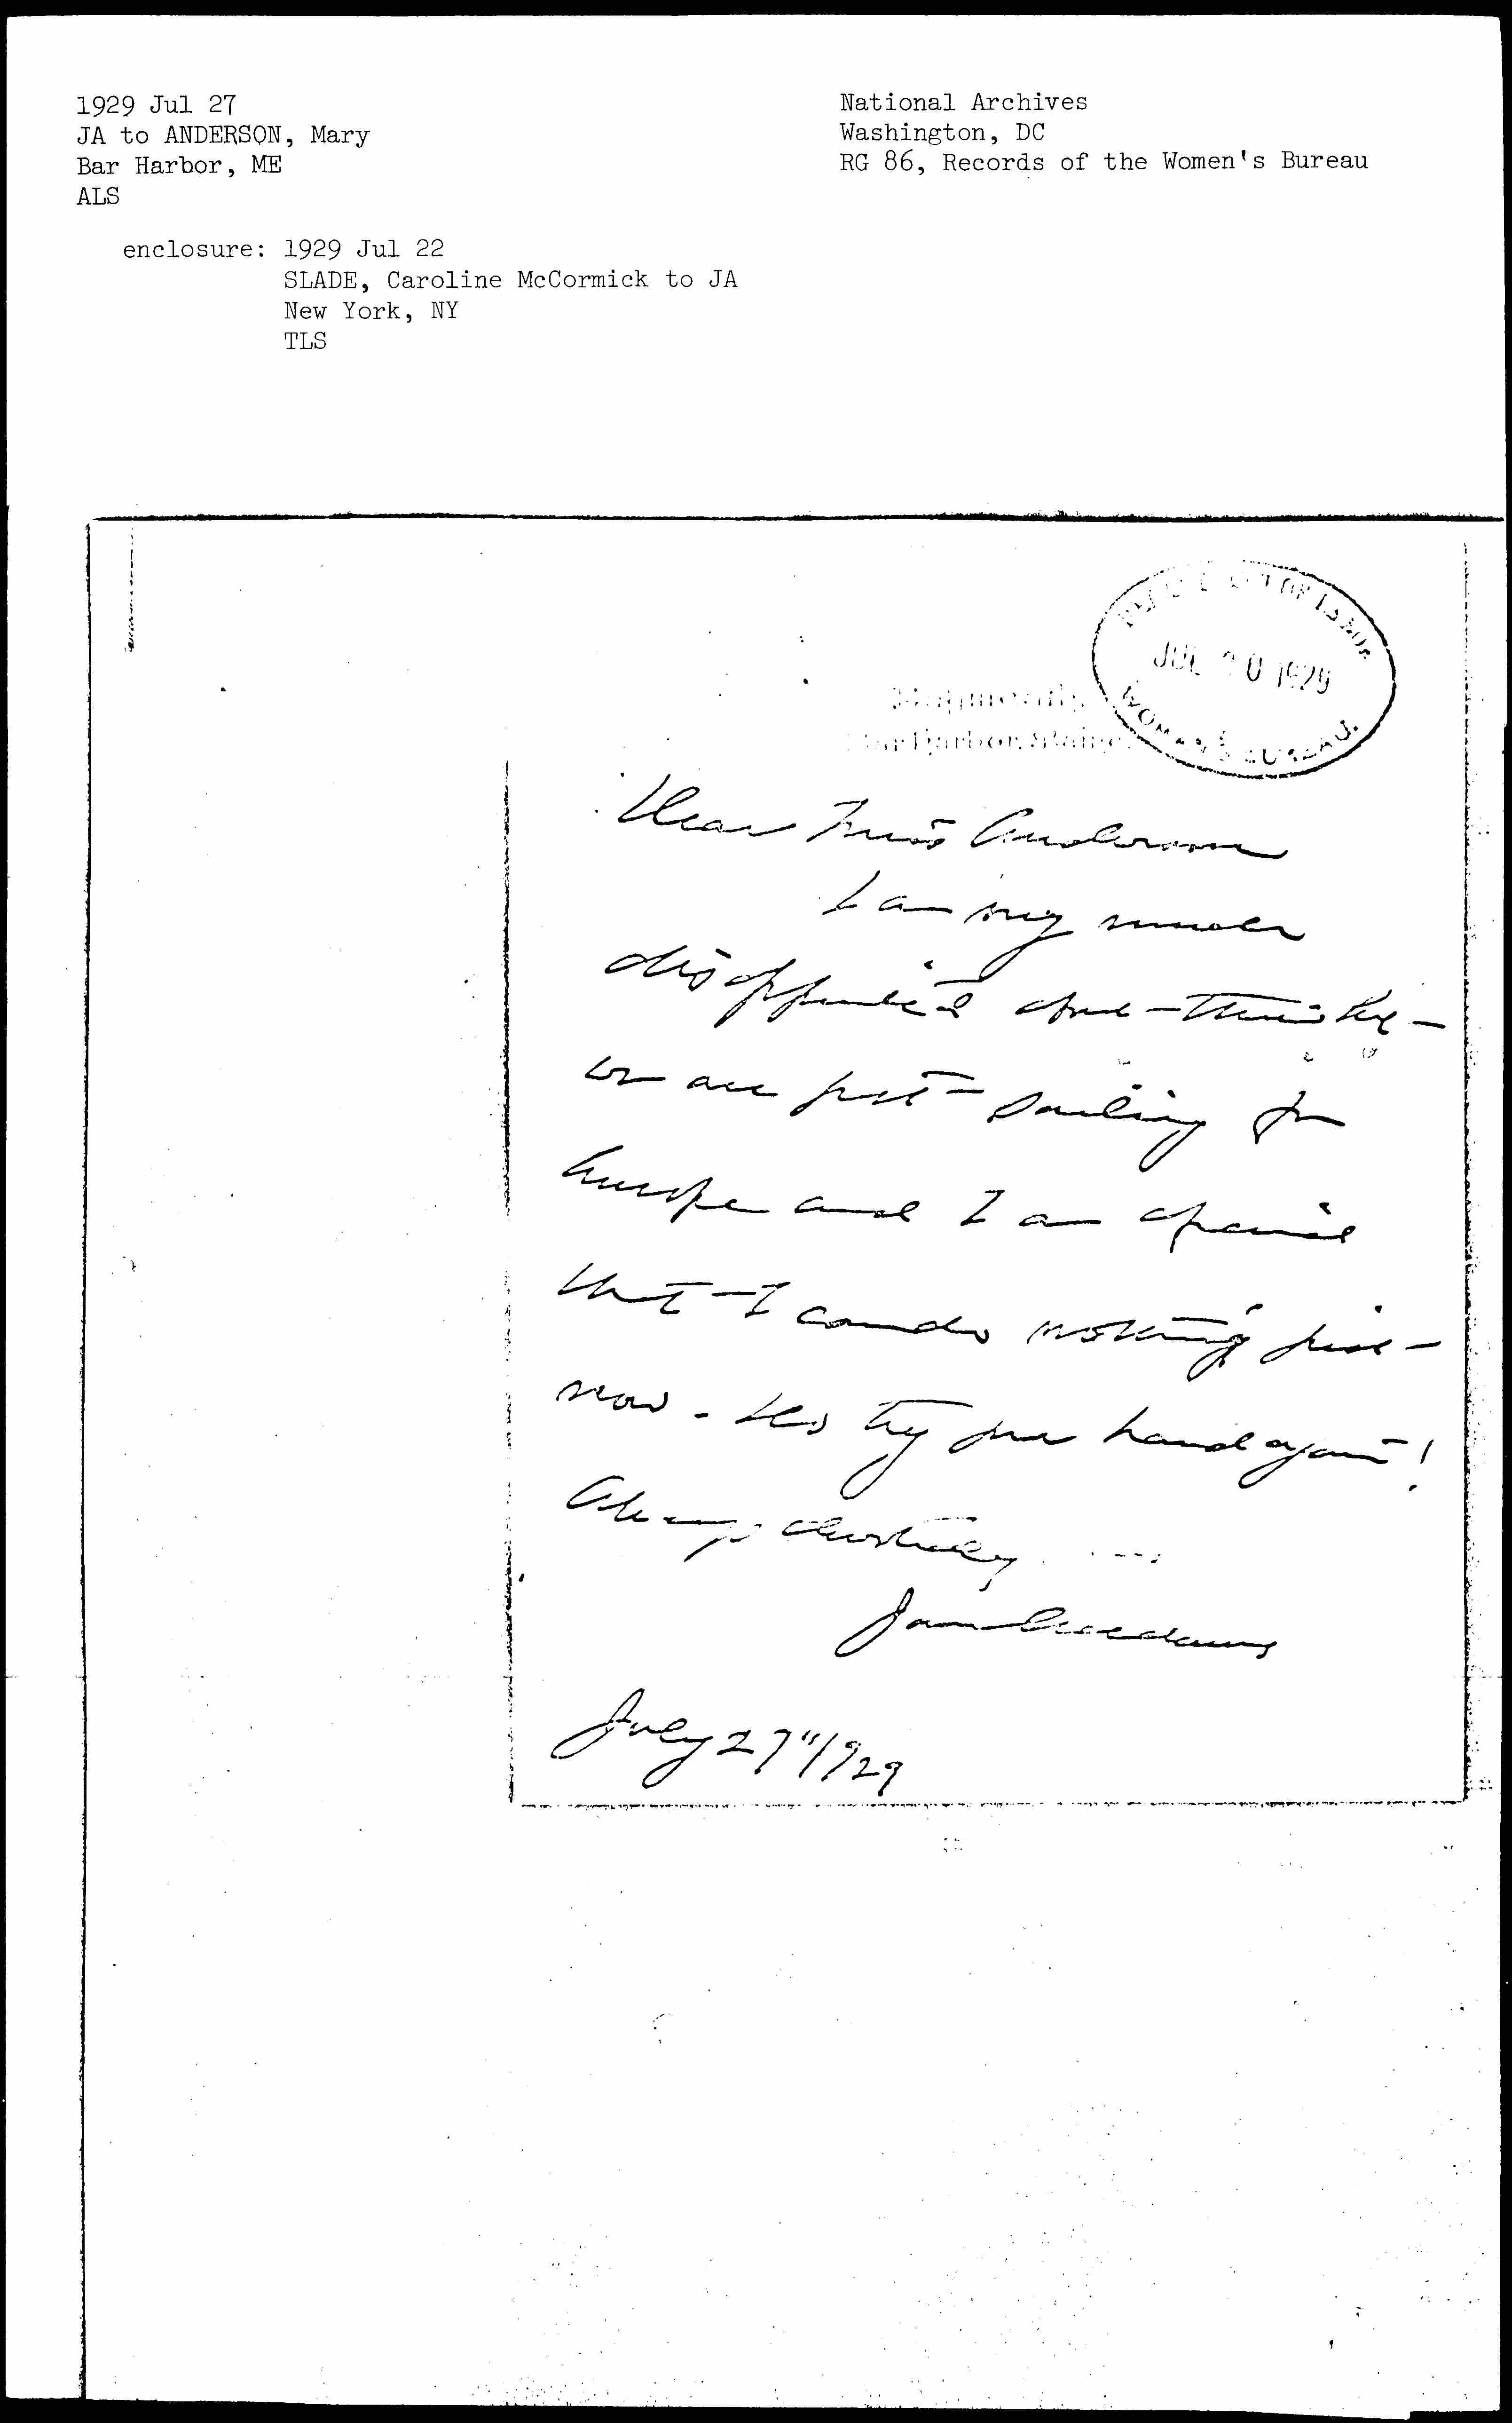 1929 Jul 27
JA to ANDERSON, Mary
Bar Harbor, ME
ALS
enclosure: 1929 Jul 22
SLADE, Caroline McCormick to JA
New York, NY
TLS
National Archives
Washington, DC
RG 86, Records of the Women's Bureau
OF LABOR
JUL 30 1929
WOMAN'S BUREAU.
Bar Harbor, Maine
Dear Miss Anderson
I am very much
disappointed about this
we are just sailing for
Europe and I am afraid
that I can do nothing just
now. try your hand again!
Always devotedly
Jane Addams
July 27" 1929